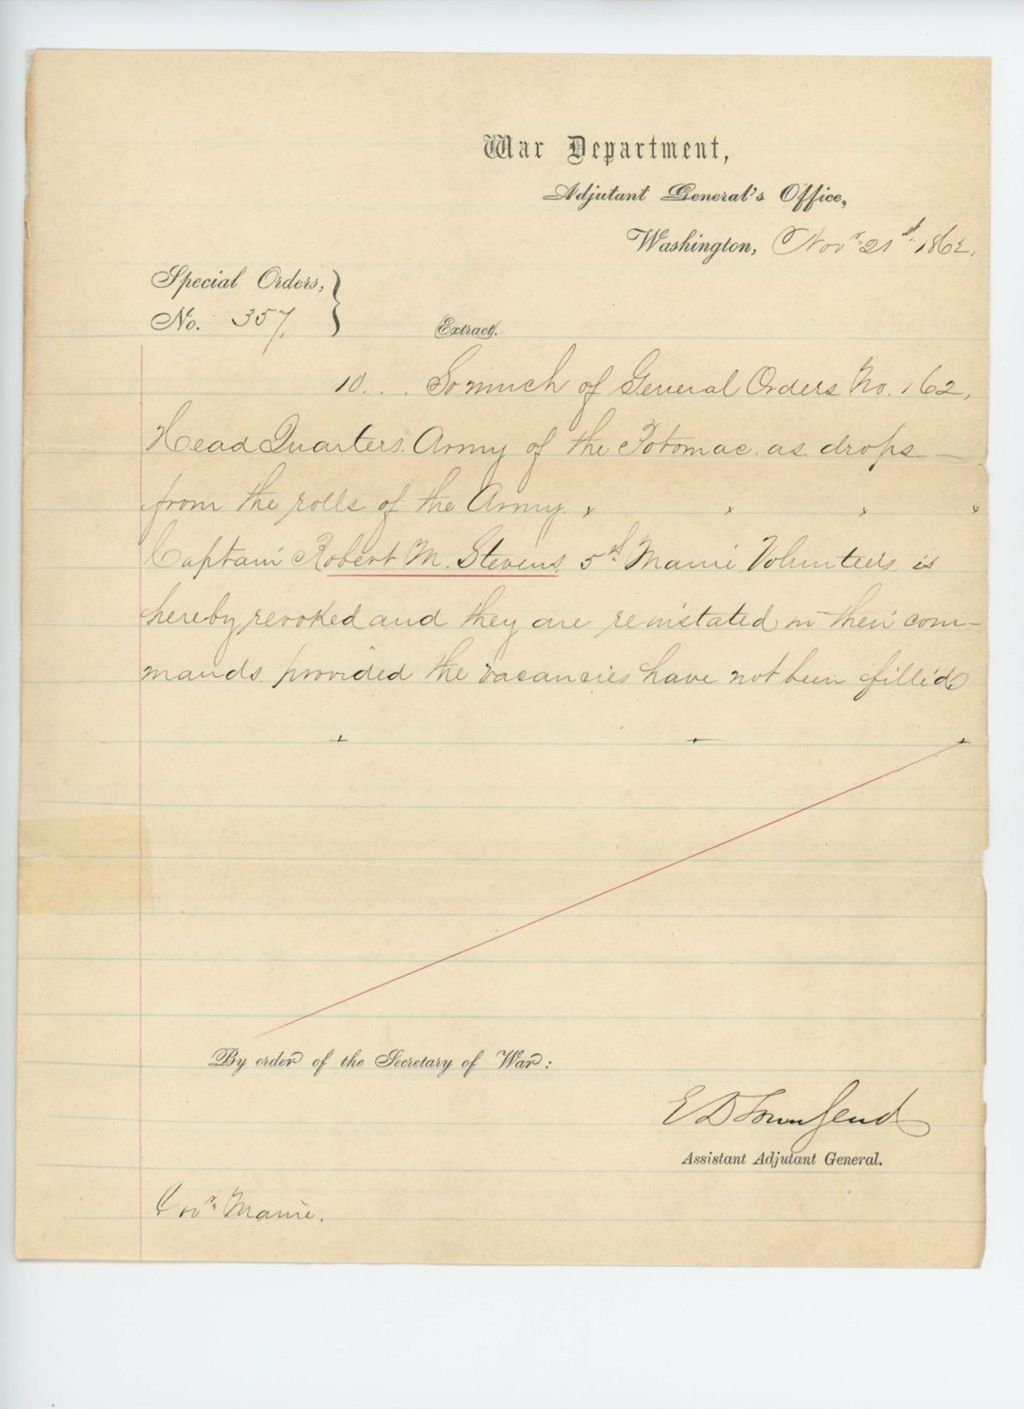 War Department,
Adjutant General's Office,
Washington, Novr 21st 1862.
Special Orders,
No. 357.
Extract.
10. . . So much of General Orders No. 162,
Head Quarters. Army of the Potomac. as drops
from the rolls of the Army. x x x x
Captain Robert M. Stevens 5th Maine Volunteers. is
hereby revoked and they are reinstated in their com-
mands. provided the vacancies have not been filled
+ + +
By order of the Secretary of War:
E D Townsend
Assistant Adjutant General.
Govr Maine.